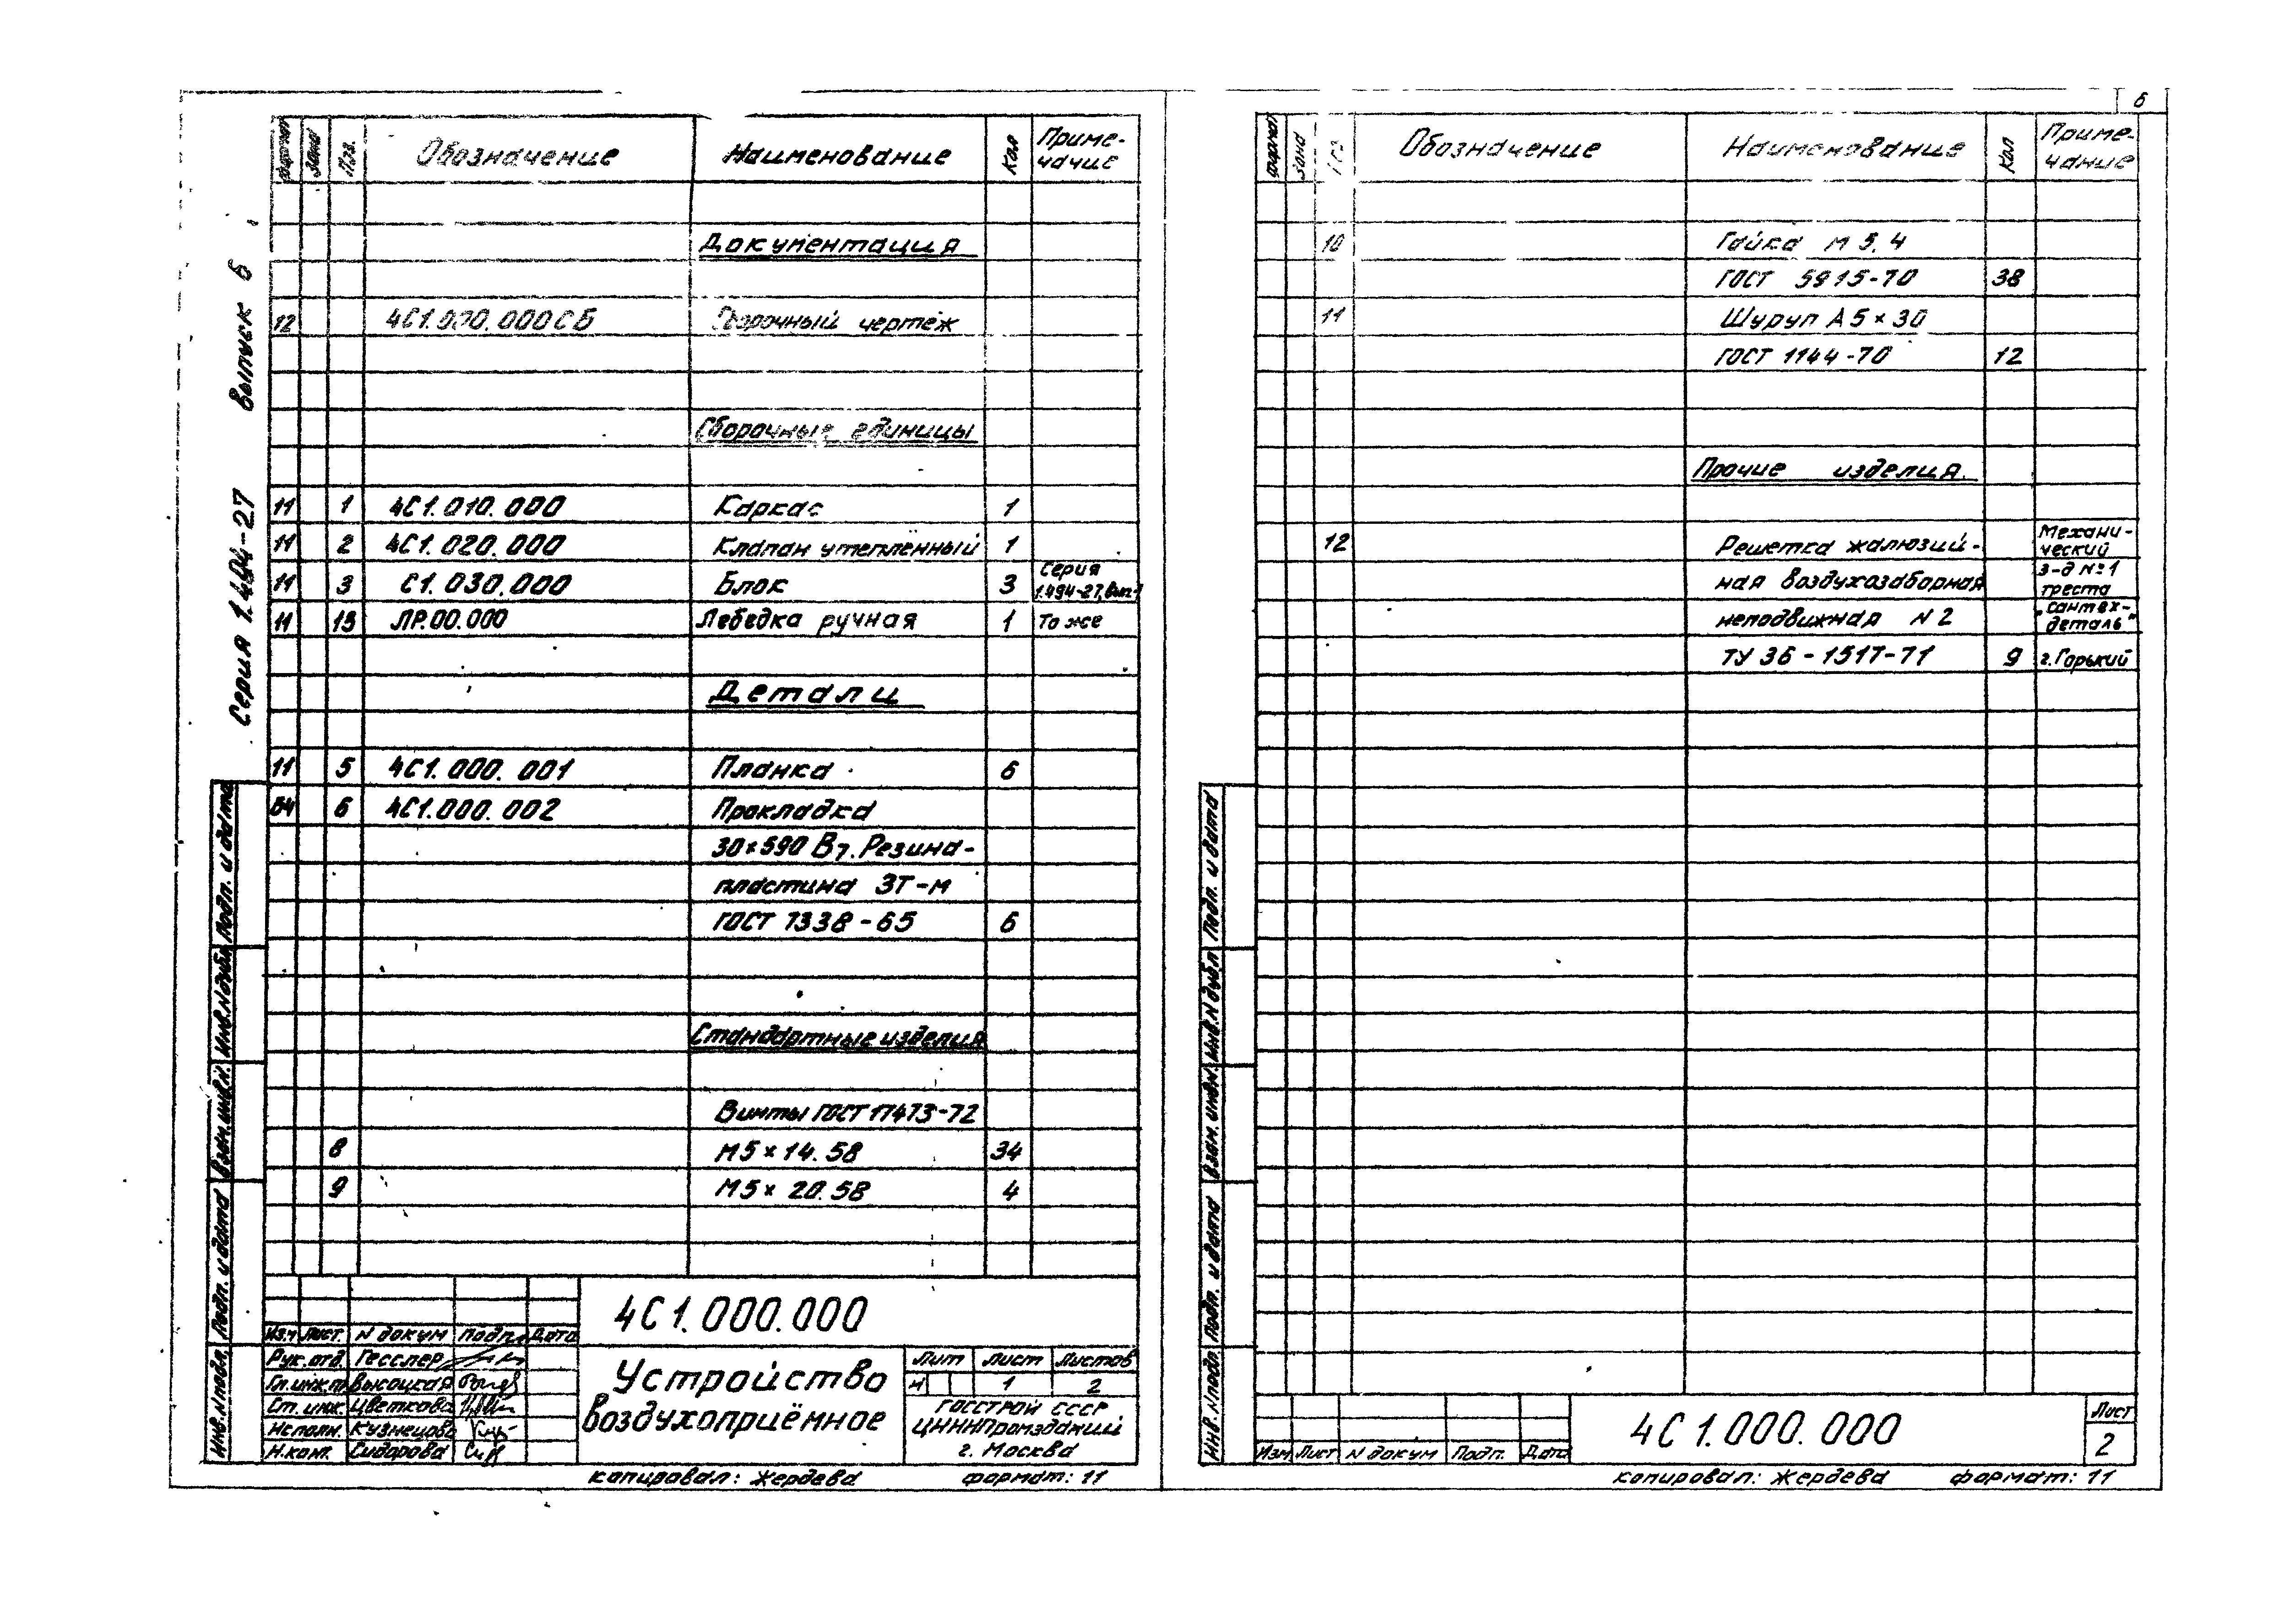 6
Серия 1.494-27 выпуск 6
формат зона Поз. Обозначение Наименование Кол Приме-
чание
Документация
12 4С1.000.000СБ Сборочный чертёж
Сборочные единицы
11 1 4С1.010.000 Каркас 1
11 2 4С1.020.000 Клапан утепленный 1
11 3 С1.030.000 Блок 3 Серия
1.494-27,вып.1
11 13 ЛР.00.000 Лебедка ручная 1 То же
Детали
11 5 4С1.000.001 Планка 6
Б4 6 4С1.000.002 Прокладка
30×590 В7. Резина-
пластина 3Т-м
ГОСТ 7338-65 6
Стандартные изделия
Винты ГОСТ 17473-72
8 М5×14.58 34
9 М5×20.58 4
Инв.N подл. Подп. и дата Взам.инв.N. Инв.N дубл. Подп. и дата
4С1.000.000
Изм Лист. N докум Подп. Дата
Рук.отд. Гесслер
Гл.инж.п Высоцкая
Ст. инж. Цветкова
Исполн. Кузнецова
Н.конт. Сидорова
Устройство
воздухоприёмное
Лит Лист Листов
И 1 2
ГОССТРОЙ СССР
ЦНИИПромзданий
г. Москва
копировал: Жердева формат: 11
формат зона Поз Обозначение Наименование Кол Приме-
чание
10 Гайка М 5.4
ГОСТ 5915-70 38
11 Шуруп А5×30
ГОСТ 1144-70 12
Прочие изделия.
12 Решетка жалюзий-
ная воздухозаборная
неподвижная N 2
ТУ 36-1517-71 9
Механи-
ческий
з-д №1
треста
"Сантех-
деталь"
г.Горький
Инв.N подл Подп. и дата Взам. инв.N Инв.N дубл Подп. и дата
4С1.000.000
Изм Лист N докум Подп. Дата
Лист
2
копировал: Жердева формат: 11